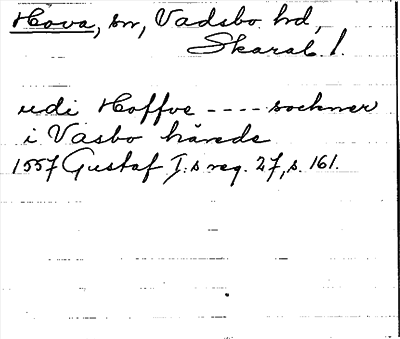 Hova, sn, Vadsbo hd,
Skarab. l.
udi Hoffve ---- sockner
i Vasbo härede
1557 Gustaf I:s reg. 27, s. 161.